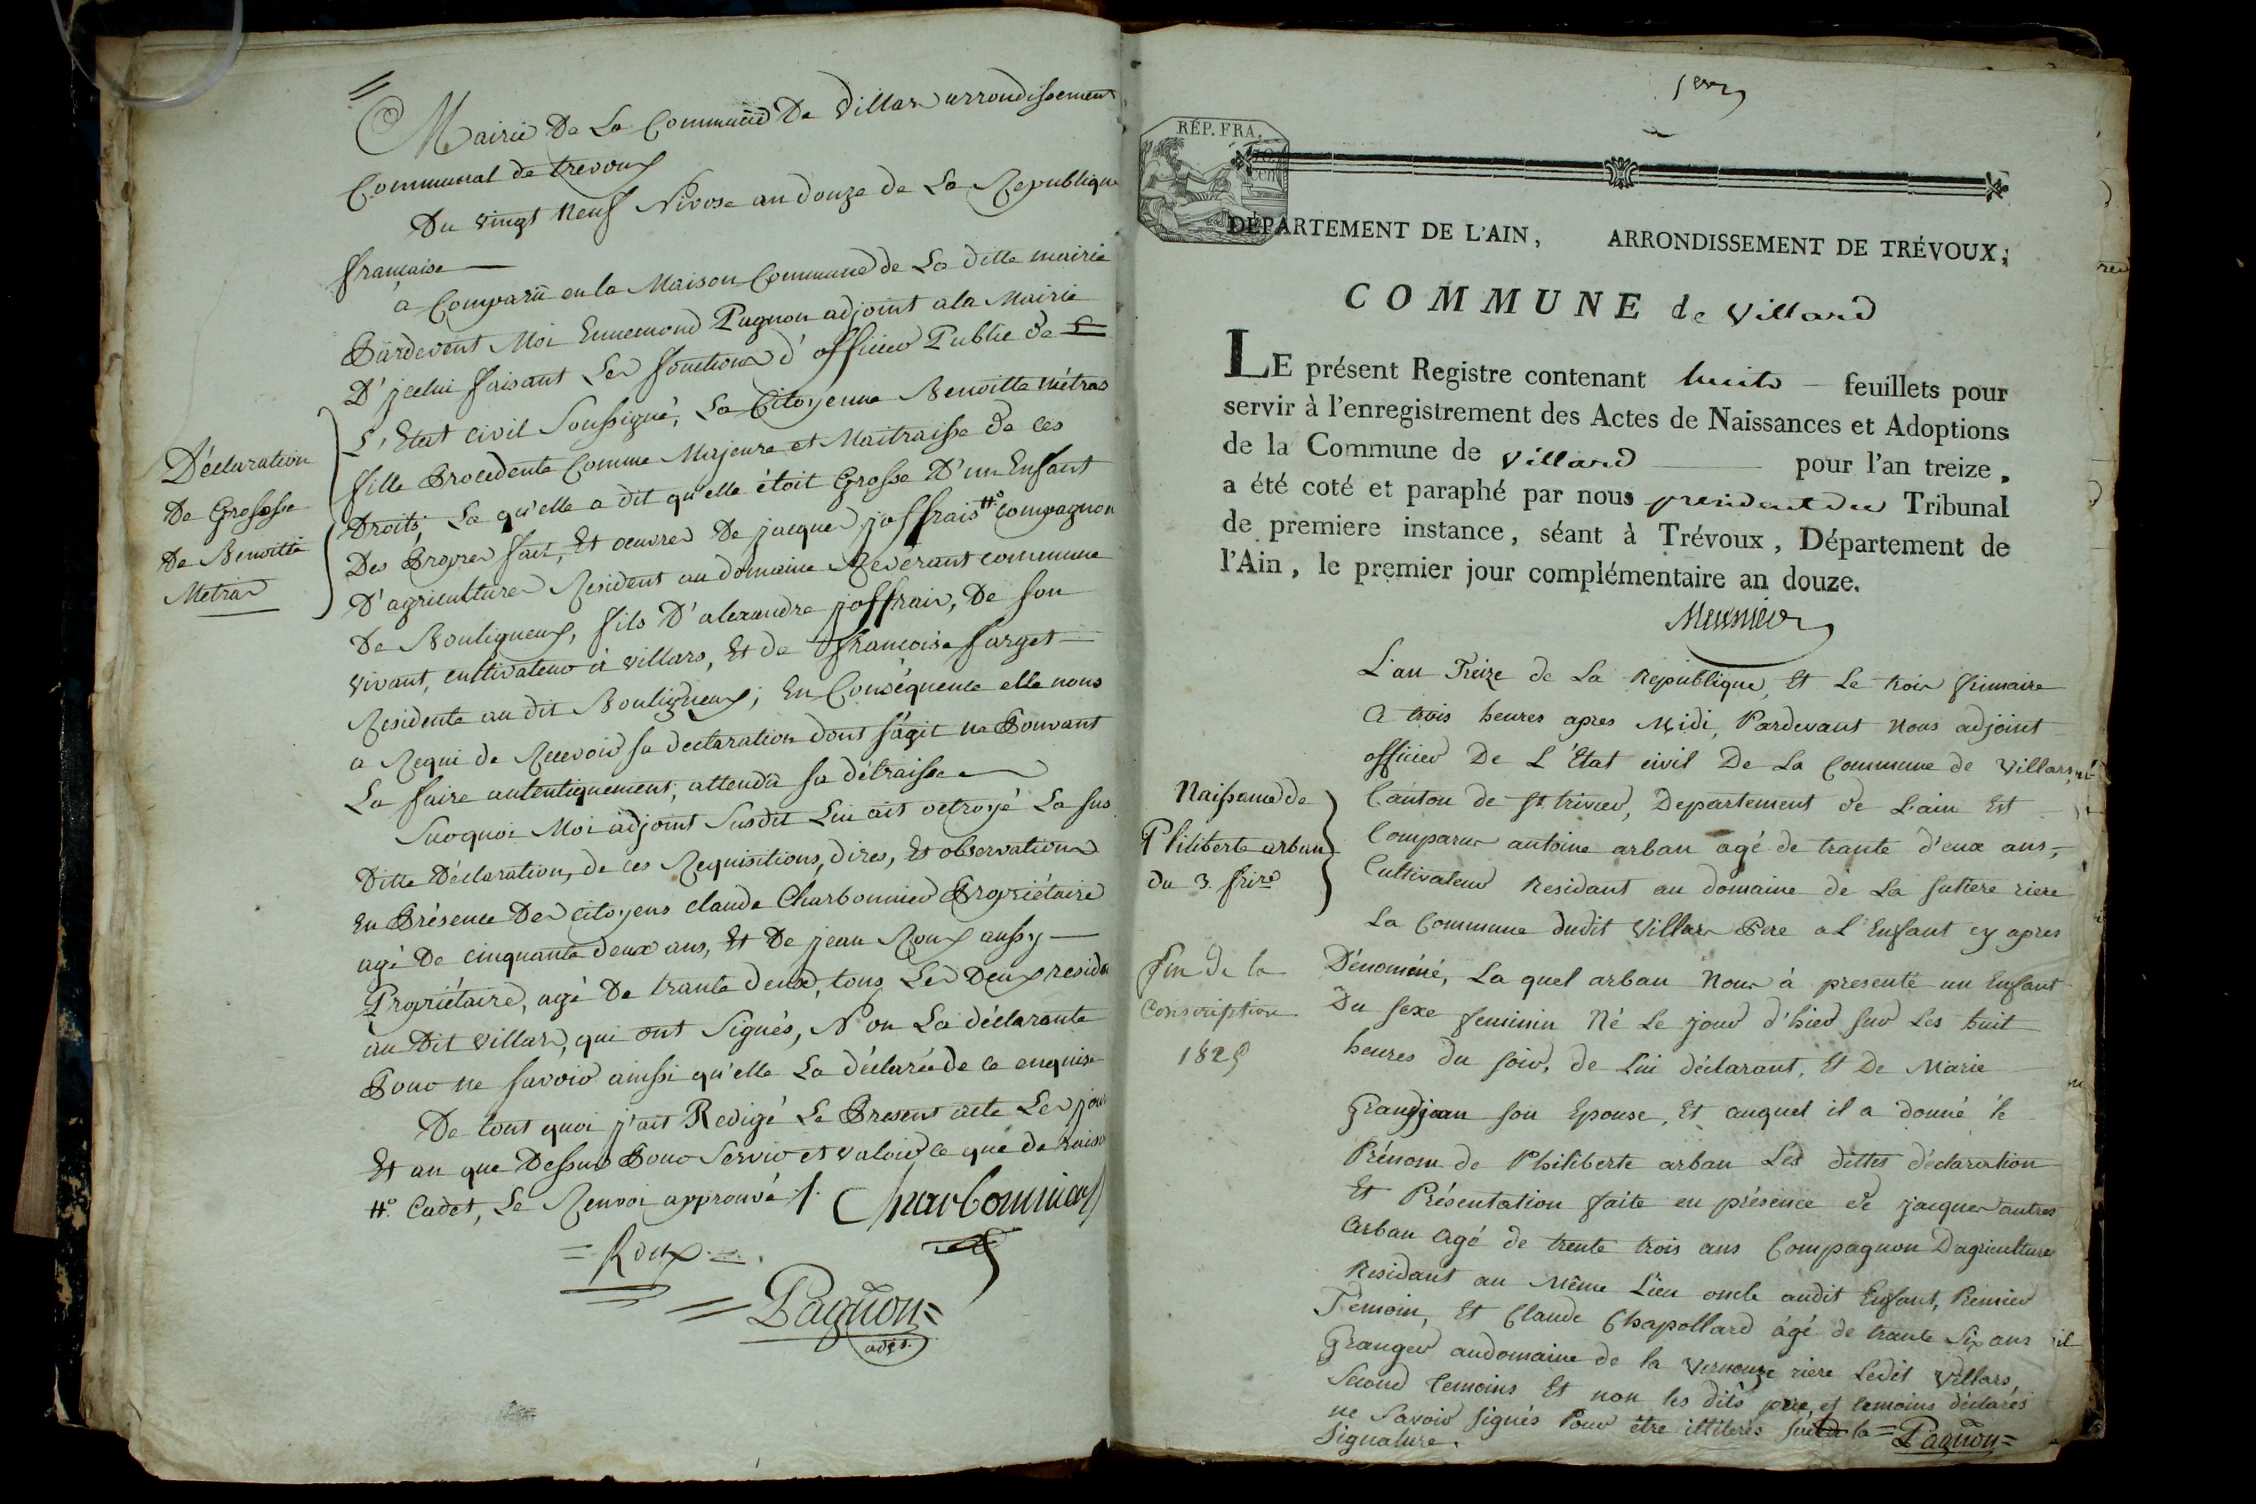 Mairie De La Commune De Villar arrondissement
Communal de trevoux
Du vingt neuf Nivose an douze de La Republique
francaise
à Comparû en la Maison Commune de La ditte mairie
Pardevent Moi Ennemond Pagnon adjoint a la Mairie
D'jcelui faisant Les fonctions d'officier Public de
L'Etat civil Soussigné, La Citoyenne Benoitte métras
fille Procedente Comme Majeure et Maitraisse de ces
Droits, La qu'elle a dit qu'elle étoit Grosse D'un Enfant
Des Propres fait, Et oeuvres De jacques joffrais #° compagnon
D'agriculture Resident au domaine Reverant commune
De Bouligneux, fils D'alexandre joffrais, De son
vivant, cultivateur à villars, Et de francoise farget
Residente au dit Bouligneux; En Conséquence elle nous
a Requi de Recevoir sa declaration dont s'agit ne Pouvant
La faire autentiquement, attendû sa détraisse
Surquoi Moi adjoint Susdit Lui ait octroyé La sus
Ditte Déclaration, de ces Requisitions, dires, Et observations
En Présence Des citoyens claude Charbonnier Propriétaire
agé De cinquante deux ans, Et De jean Roux aussy
Propriétaire, agé De trante deux, tous Les Deux residen
au Dit villars, qui ont Signés, Non La déclarante
Pour ne savoir ainssi qu'elle La déclarée de ce enquise
De tout quoi j'ait Redigé Le Present acte Les jour
Et an que Dessus Pour Servir et valoir ce que de raison
#° Cadet, Le Renvoi approuvé ./. Charbonnier
= Roux =
= Pagnon =
adjt.
Déclaration
De Grossesse
De Benoitte
Metras
1er
RÉP. FRA.
DÉPARTEMENT DE L'AIN, ARRONDISSEMENT DE TRÉVOUX;
COMMUNE de Villard
LE présent Registre contenant huit feuillets pour
servir à l'enregistrement des Actes de Naissances et Adoptions
de la Commune de Villard pour l'an treize,
a été coté et paraphé par nous president du Tribunal
de premiere instance, séant à Trévoux, Département de
l'Ain, le premier jour complémentaire an douze.
Meunier
L'an Treize de La Republique, Et Le trois frimaire
A trois heures apres Midi, Pardevant Nous adjoint
officier De L'Etat civil De La Commune de Villars,
Canton de St trivier, Departement de L'ain Est
Comparus antoine arban agé de trante d'eux ans,
Cultivateur Residant au domaine de La rière
La Commune dudit Villars Pere a L'Enfant cy apres
Dénommé, La quel arban Nous à presenté un Enfant
Du sexe feminin Né Le jour d'hier sur Les huit
heures du soir, de Lui déclarant, Et De Marie
Grandjean son Epouse, Et auquel il a donné le
Prénom de Philiberte arban Les dittes déclaration
Et Présentation faite en présence de jacques autres
Arban Agé de trente trois ans Compagnon D'agriculture
Residant au Même Lieu oncle audit Enfant, Premier
Temoin, Et Claude Chapollard agé de trante Six ans
Granger audomaine de la Vernouze riere Ledit Villars,
Second temoins Et non les dits père, et temoins déclarés
ne Savoir signés Pour être illiterés la = Pagnon =
Signature.
Naissance de
Philiberte arban
du 3. frire
fin de la
Conscription
1825